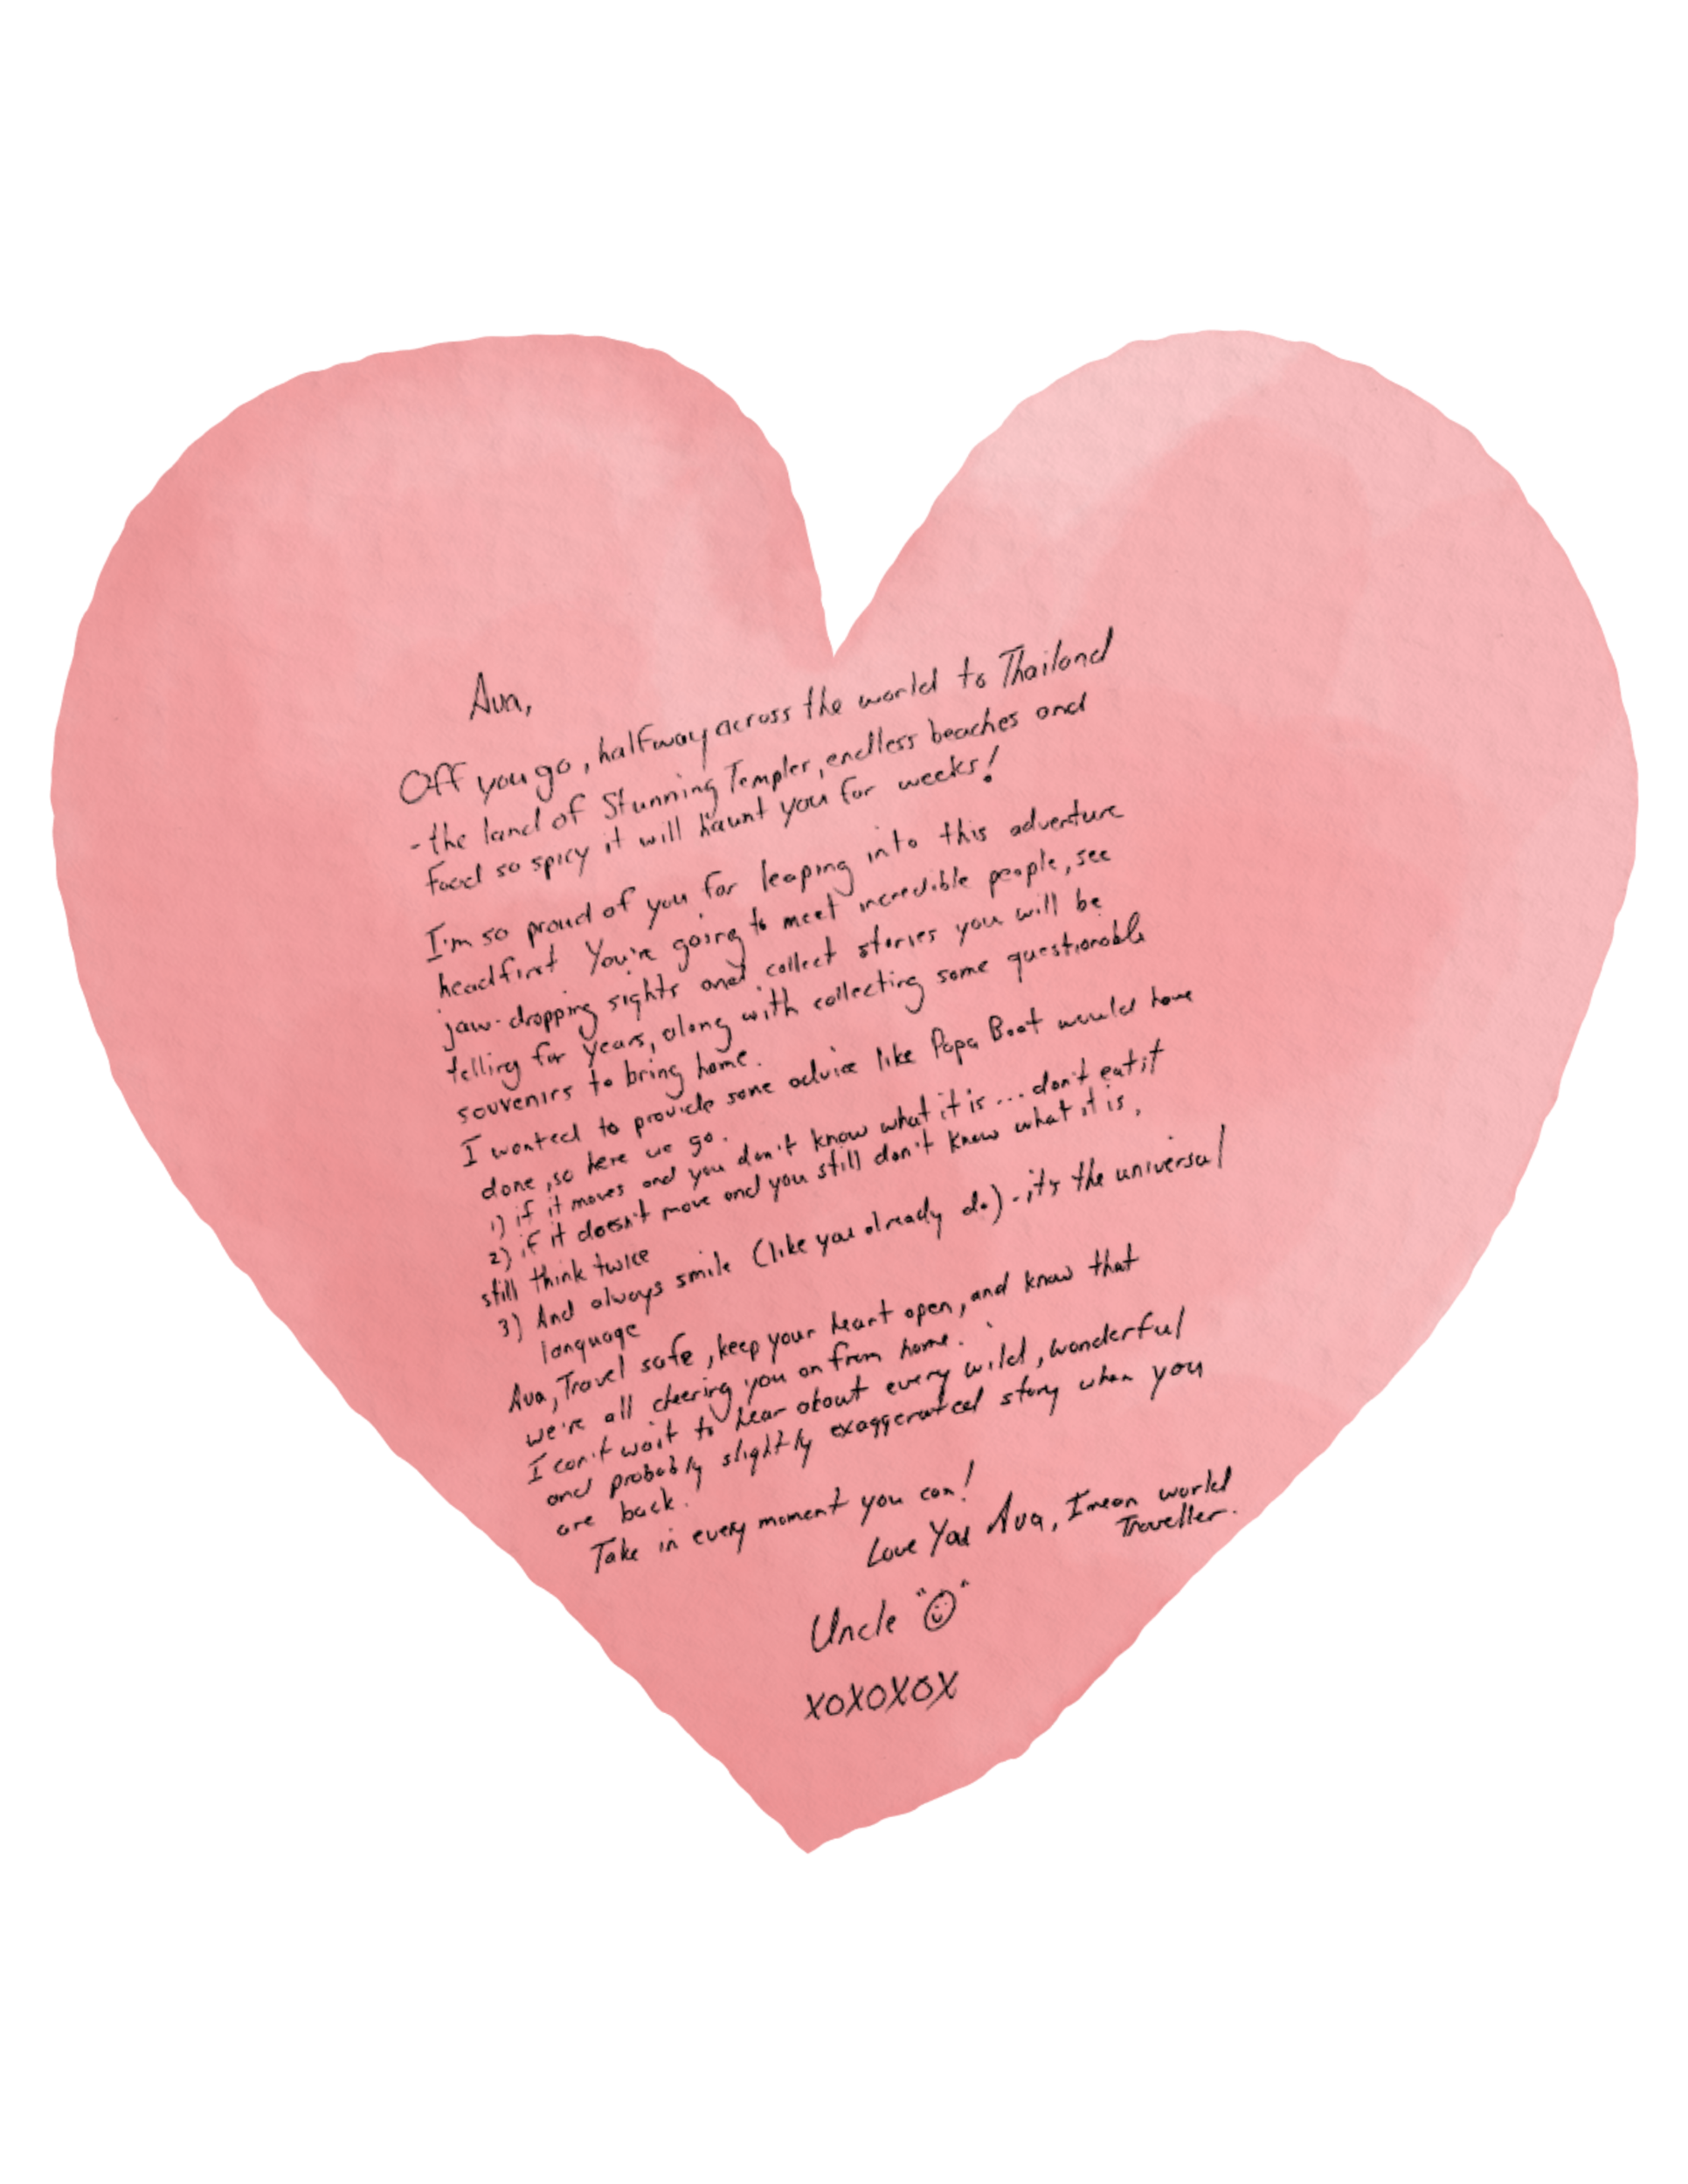 Ava,
Off you go, halfway across the world to Thailand
- the land of Stunning Temples, endless beaches and
food so spicy it will haunt you for weeks!
I'm so proud of you for leaping into this adventure
headfirst You're going to meet incredible people, see
jaw-dropping sights and collect stories you will be
telling for years, along with collecting some questionable
souvenirs to bring home.
I wanted to provide some advice like Papa Boot would have
done, so here we go.
1) if it moves and you don't know what it is ... don't eat it
2) if it doesn't move and you still don't know what it is,
still think twice
3) And always smile (like you already do) - it's the universal
language
Ava, Travel safe, keep your heart open, and know that
we're all cheering you on from home.
I can't wait to hear about every wild, wonderful
and probably slightly exaggerated story when you
are back.
Take in every moment you can!
Love You Ava, I mean world
Traveller.
Uncle "☺"
XOXOXOX